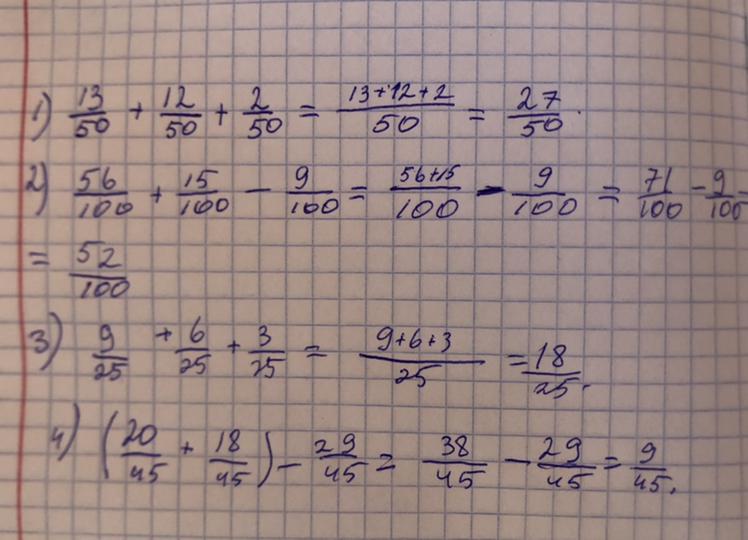 1) 13/50 + 12/50 + 2/50 = 13+12+2/50 = 27/50.
2) 56/100 + 15/100 - 9/100 = 56+15/100 - 9/100 = 71/100 - 9/100 =
= 52/100
3) 9/25 + 6/25 + 3/25 = 9+6+3/25 = 18/25.
4) (20/45 + 18/45) - 29/45 = 38/45 - 29/45 = 9/45.